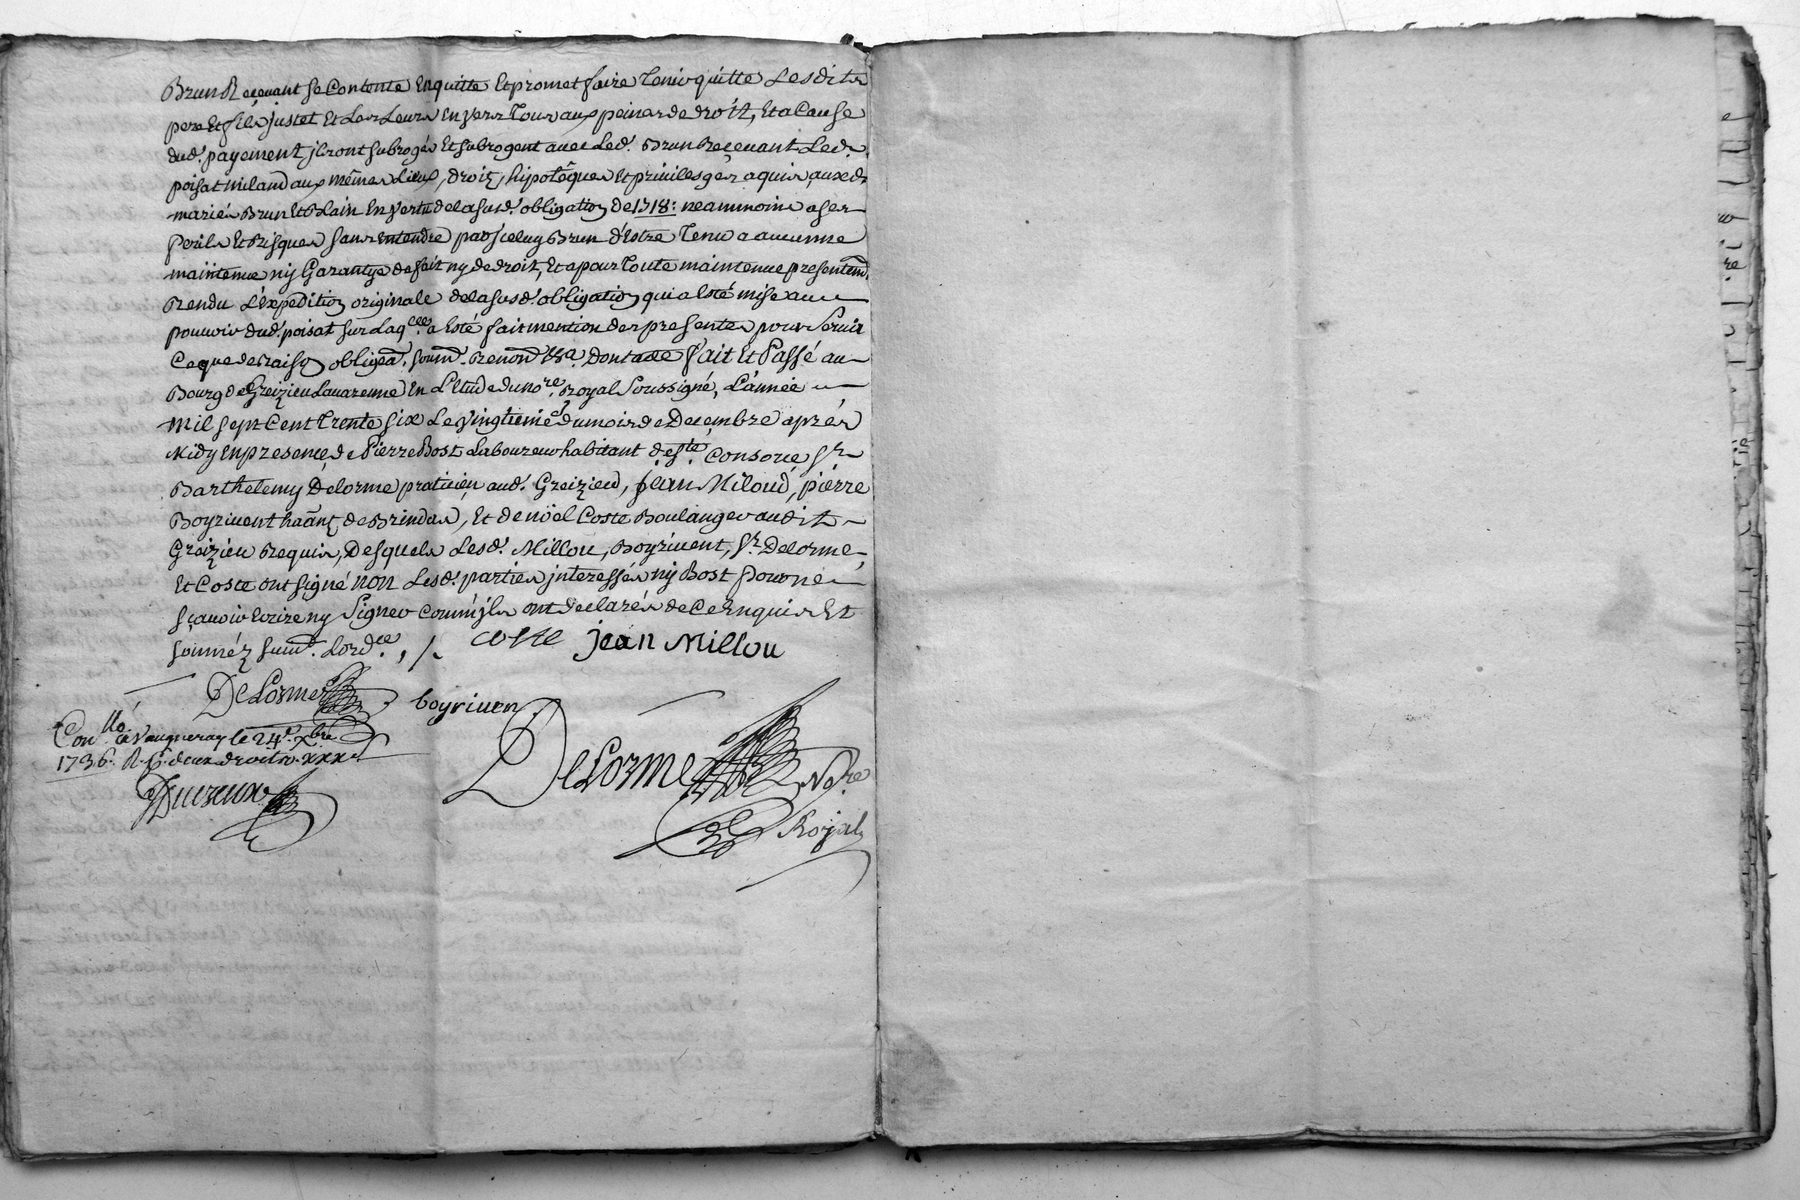 Brun Recevant se Contente En quitte Et promet faire Tenir quitte Lesdits
pere Et fils justet Et Les Leurs Envers Tous aux peines de droit, Et a Cause
dud. payement jls ont subrogés Et subrogent avec Led. Brun Recevant Led.
poisat miland aux mêmes Lieux, droitz, hipotêques Et privileges aquis auxd.
mariés Brun Et Blain En vertu de la susd. obligation de 1718: neammoins a ses
perils Et Risques sans Entendre par jceluy Brun d'Estre Tenu a aucunne
maintenue nij Garantye de fait ny de droit, Et a pour Toute maintenue presentem.
Rendu L'expedition originale de la susd. obligation qui a Esté mise au
pouvoir dud. poisat sur Laq.elle a Esté fait mention des presentes pour Servir
Ce que de raison obligea.on soum.on Renon.on &a Dont acte fait Et Passé au
Bourg de Greizieu Lavarenne En L'Etude du no.re Royal Soussigné, L'année
Mil sept Cent Trente six Le vingtieme du mois de Decembre aprés
Midy En presence de Pierre Bost Laboureur habitant de S.te Consorce S.r
Barthelemy Delorme praticien aud. Greizieu, jean Miloud, pierre
Boyrivent ha͠antz de Brindas, Et de nöel Coste Boulanger audit
Greizieu Requis, Desquels Lesd. Millou, Boyrivent, S.r Delorme,
Et Coste ont signé non Lesd. parties jnteressés nij Bost pour ne
sçavoir Ecrire ny Signer comm' jls ont declarés de Ce Enquis Et
sommés suiv.t Lord.ce, /.
coste jean Millou
DeLorme
boyriven
Con.llé a Vaugneray le 24.e Xbre
1736. R. G. deux droits XXX
Ducreux
DeLorme No.re
Royal